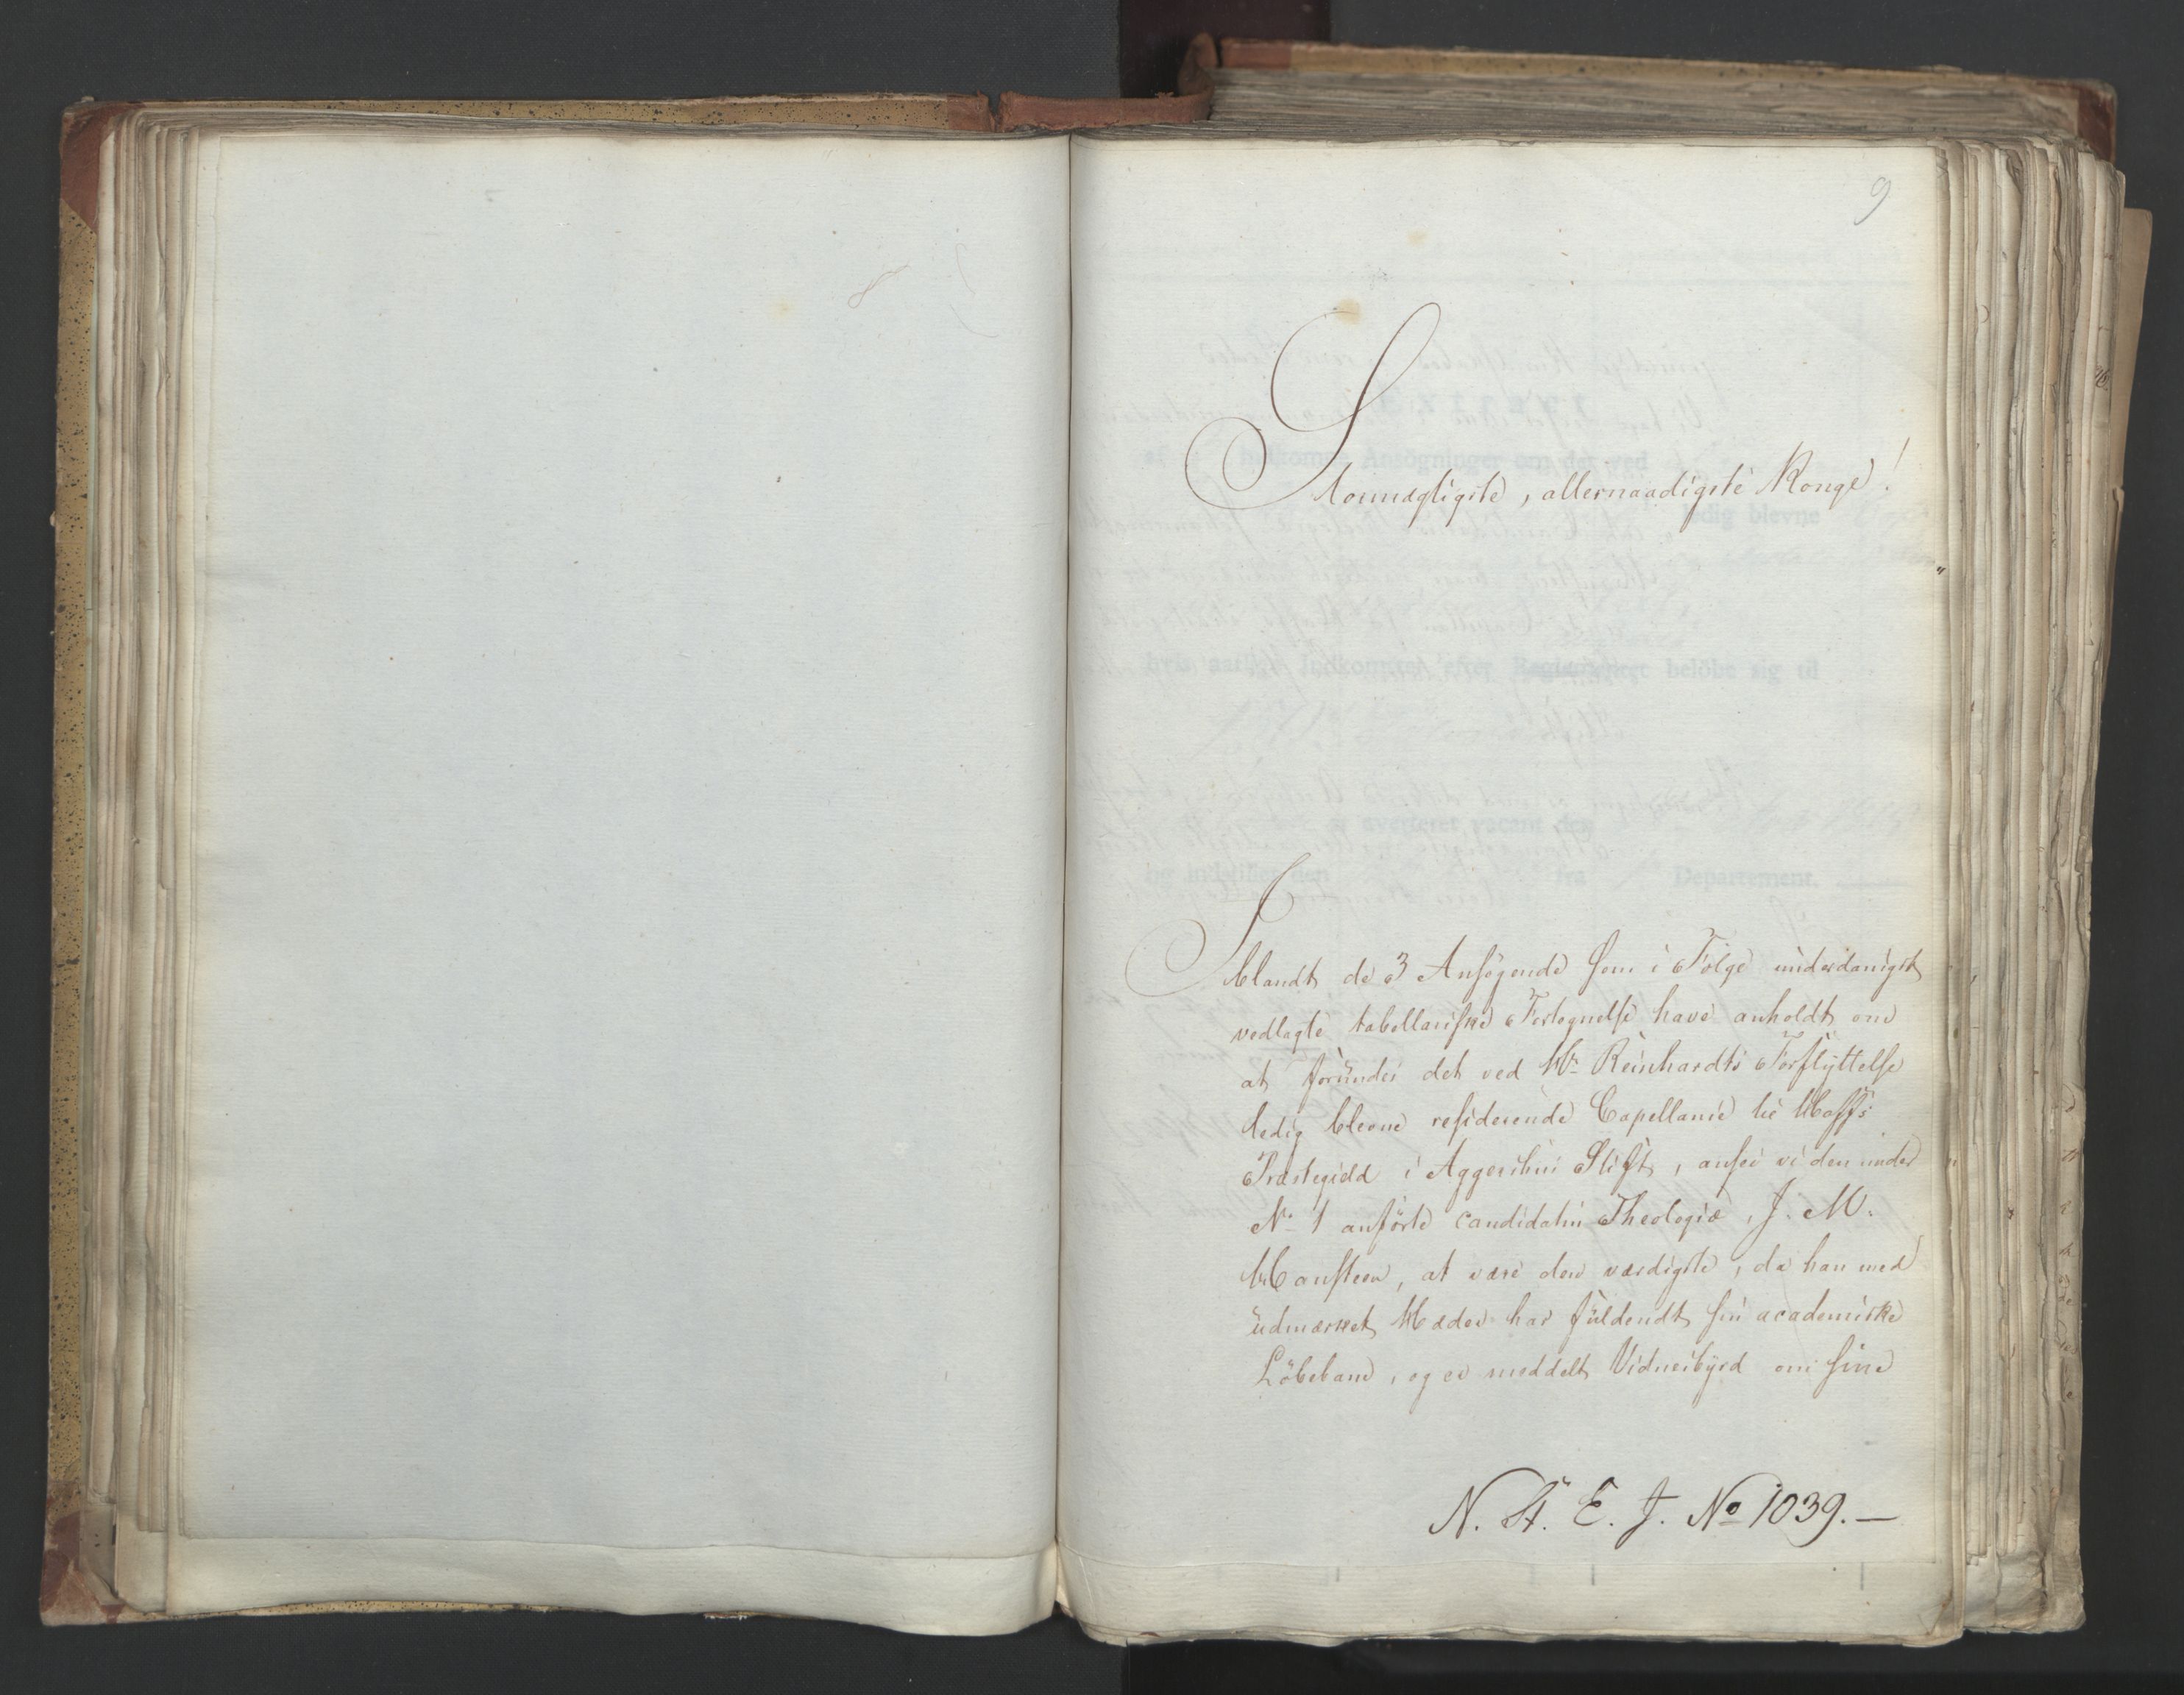 9
Stormægtigste, allernaadigste Konge!
Iblandt de 3 Ansøgende som i Følge underdanigst
vedlagte tabellariske Fortegnelse have anholdt om
at forundes det ved Hr. Reinhardts Forflyttelse
ledig blevne residerende Capellanie til
Præstegield i Aggershuus Stift, ansee vi den under
No 1 anførte candidatus Theologiæ, J. M.
at være den værdigste, da han med
udmærket Hæder har fuldendt sin academiske
Löbebane, og er meddelt Vidnesbyrd om sine
N. A. E. J. No 1039.—